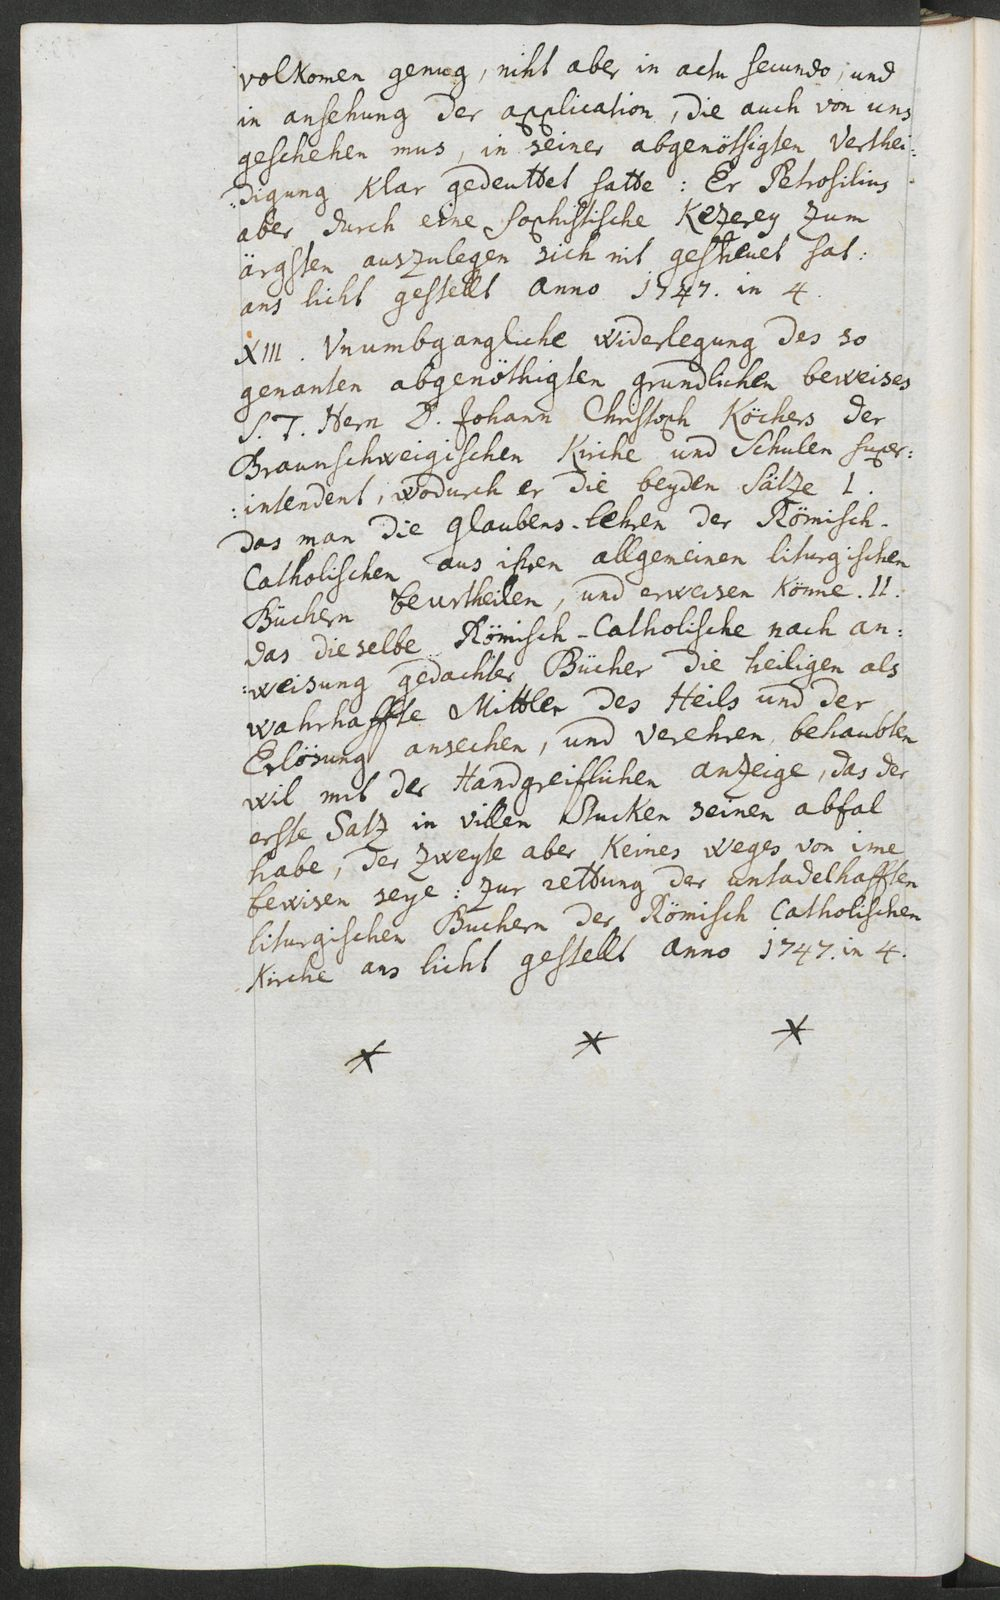 volkomen genug, niht aber in actu secundo, und
in ansehung der application, die auch von uns
geschehen mus, in seiner abgenöthigten Verthei:
:digung klar gedeuttet hatte: Er Petrosilius
aber durch eine sophistische Kezerey zum
ärgsten auszulegen sich nit gescheuet hat:
ans licht gestellt Anno 1747. in 4.
XIII. Vnumbgangliche widerlegung des so
genanten abgenöthigten grundlichen beweises
S. T. Hern D. Johann Christoph Köchers der
Braunschweigischen Kirche und Schulen super:
:intendent, wodurch er die beyden Sätze I.
das man die glaubens-lehren der Römisch-
Catholischen aus ihren allgemeinen liturgischen
Büchern beurtheilen, und erweisen könne. II.
das dieselbe Römisch-Catholische nach an:
:weisung gedachter Bücher die heiligen als
wahrhaffte Mittler des Heils und der
Erlösung ansechen, und verehren, behaubten
wil mit der Handgreiflichen anzeige, das der
erste Satz in villen Stucken seinen abfal
habe, der zweyte aber keines weges von ime
bewisen seye: zur rettung der untadelhafften
liturgischen Buchern der Römisch Catholischen
Kirche ans licht gestellt Anno 1747. in 4.
* * *